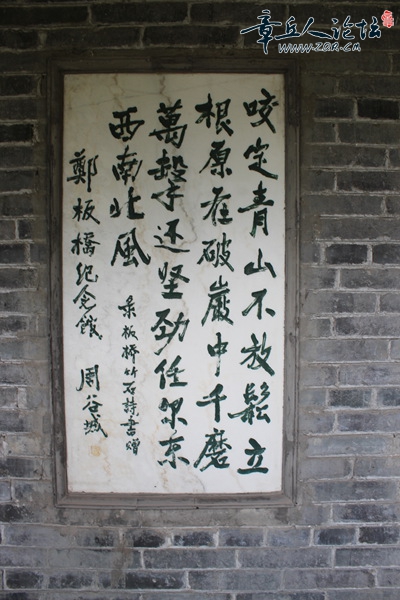 章丘人论坛
WWW.ZQR.CN
咬定青山不放鬆立
根原在破巖中千磨
萬擊还坚劲任尔东
西南北風
录板桥竹石詩書贈
鄭板橋紀念館 周谷城